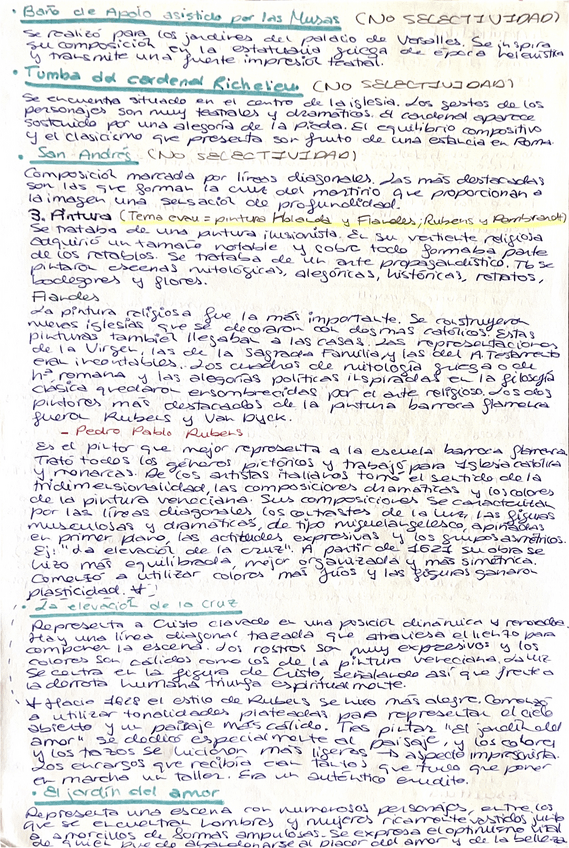 · Baño de Apolo asistido por las Musas (NO SELECTIVIDAD)
Se realizó para los jardines del palacio de Versalles. Se inspira
su composición en la estatuaria griega de época helenista
y transmite una fuerte impresión teatral.
· Tumba del cardenal Richelieu (NO SELECTIVIDAD)
Se encuentra situado en el centro de la iglesia. Los gestos de los
personajes son muy teatrales y dramáticos. El cardenal aparece
sostenido por una alegoría de la Piedad. El equilibrio compositivo
y el clasicismo que presenta son fruto de una estancia en Roma.
· San Andrés (NO SELECTIVIDAD)
Composición marcada por líneas diagonales. Las más destacadas
son las que forman la cruz del martirio que proporcionan a
la imagen una sensación de profundidad.
3. Pintura (Tema evau = pintura Holanda y Flandes; Rubens y Rembrandt)
Se trataba de una pintura ilusionista. En su vertiente religiosa
adquirió un tamaño notable y sobre todo formaba parte
de los retablos. Se trataba de un arte propagandístico. Tb se
pintaron escenas mitológicas, alegóricas, históricas, retratos,
bodegones y flores.
Flandes
La pintura religiosa fue la más importante. Se construyeron
nuevas iglesias que se decoraron con dogmas católicos. Estas
pinturas también llegaban a las casas. Las representaciones
de la Virgen, las de la Sagrada Familia y las del A. Testamento
eran incontables. Los cuadros de mitología griega o de
hª romana y las alegorías políticas inspiradas en la filosofía
clásica quedaron ensombrecidas por el arte religioso. Los dos
pintores más destacados de la pintura barroca flamenca
fueron Rubens y Van Dyck.
- Pedro Pablo Rubens
Es el pintor que mejor representa a la escuela barroca flamenca.
Trató todos los géneros pictóricos y trabajó para Iglesia católica
y monarcas. De los artistas italianos tomó el sentido de la
tridimensionalidad, las composiciones dramáticas y los colores
de la pintura veneciana. Sus composiciones se caracterizan
por las líneas diagonales los contrastes de la luz, las figuras
musculosas y dramáticas, de tipo miguelangelesco, apiñadas
en primer plano, las actitudes expresivas y los grupos asimétricos.
Ej: "La elevación de la cruz". A partir de 1621 su obra se
hizo más equilibrada, mejor organizada y más simétrica.
Comenzó a utilizar colores más fríos y las figuras ganaron
plasticidad. *
· La elevación de la Cruz
Representa a Cristo clavado en una posición dinámica y renovada.
Hay una línea diagonal trazada que atraviesa el lienzo para
componer la escena. Los rostros son muy expresivos y los
colores son cálidos como los de la pintura veneciana. La luz
se centra en la figura de Cristo, señalando así que frente a
la derrota humana triunfa espiritualmente.
* Hacia 1628 el estilo de Rubens se hizo más alegre. Comenzó
a utilizar tonalidades plateadas para representar el cielo
abierto y un paisaje más cálido. Tras pintar "El jardín del
amor" se dedicó especialmente al paisaje, y los colores
y los trazos se hicieron más ligeros de aspecto impresionista.
Los encargos que recibía eran tantos que tuvo que poner
en marcha un taller. Era un auténtico erudito.
· El jardín del amor
Representa una escena con numerosos personajes, entre los
que se encuentran hombres y mujeres ricamente vestidos junto
a amorcillos de formas ampulosas. Se expresa el optimismo vital
de quien puede abandonarse al placer del amor y de la belleza